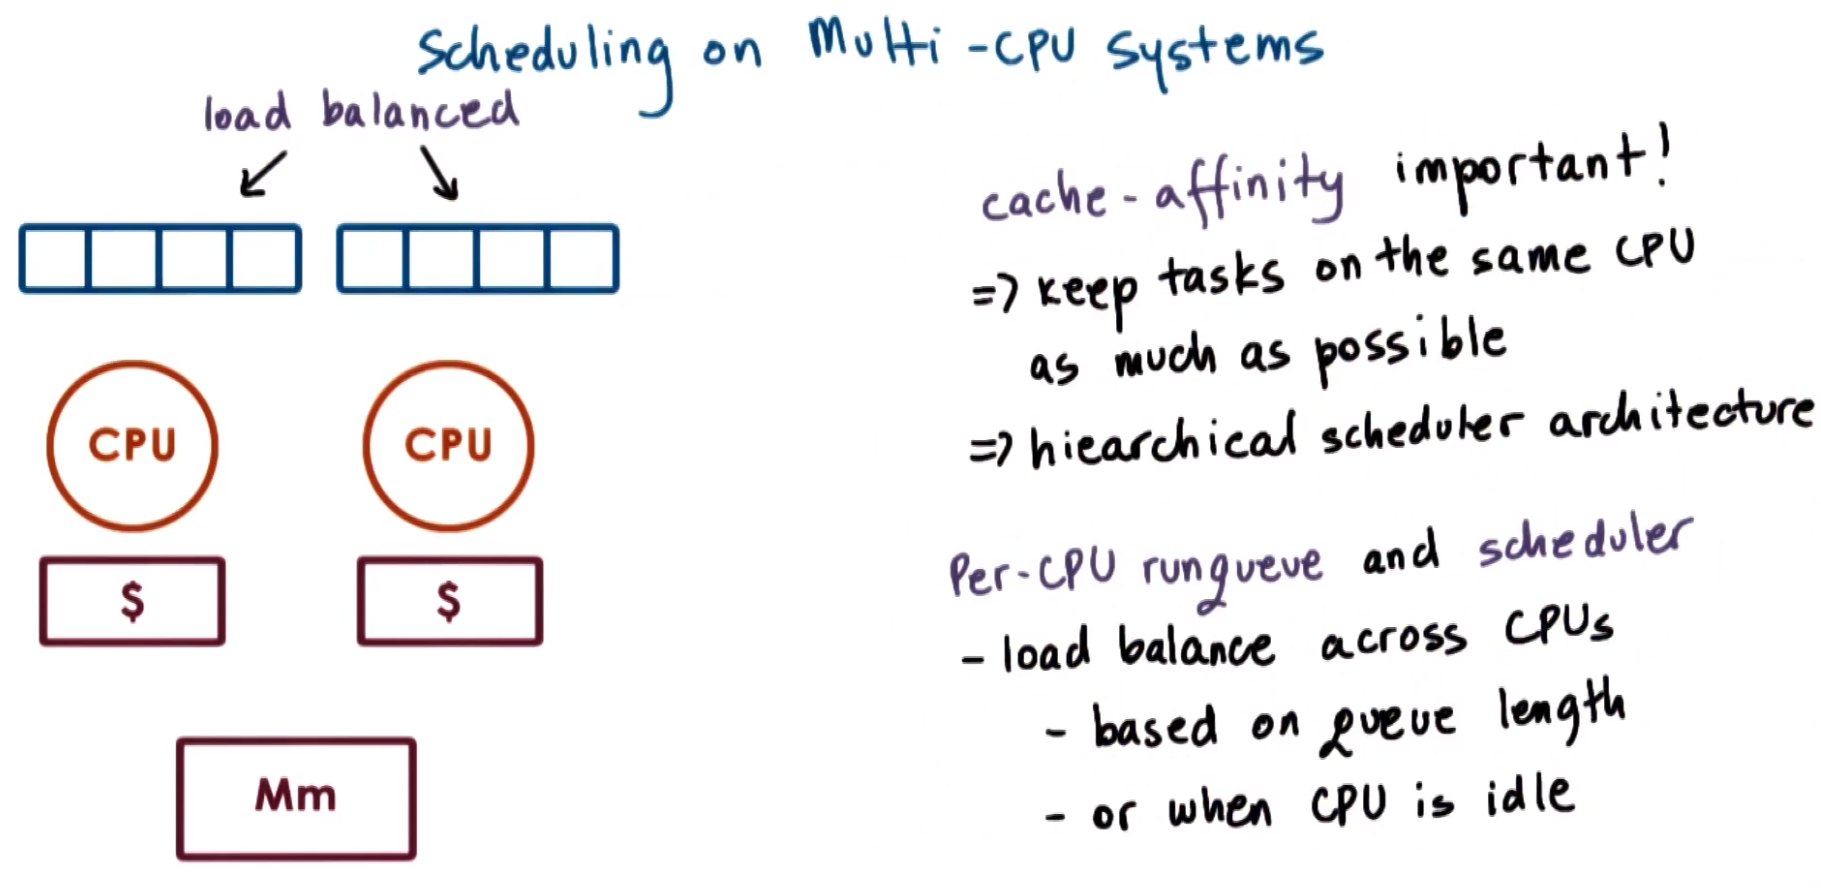 Scheduling on Multi-CPU Systems
load balanced
CPU
CPU
$
$
Mm
cache-affinity important!
=> keep tasks on the same CPU
as much as possible
=> hiearchical scheduler architecture
Per-CPU runqueue and scheduler
- load balance across CPUs
- based on queue length
- or when CPU is idle